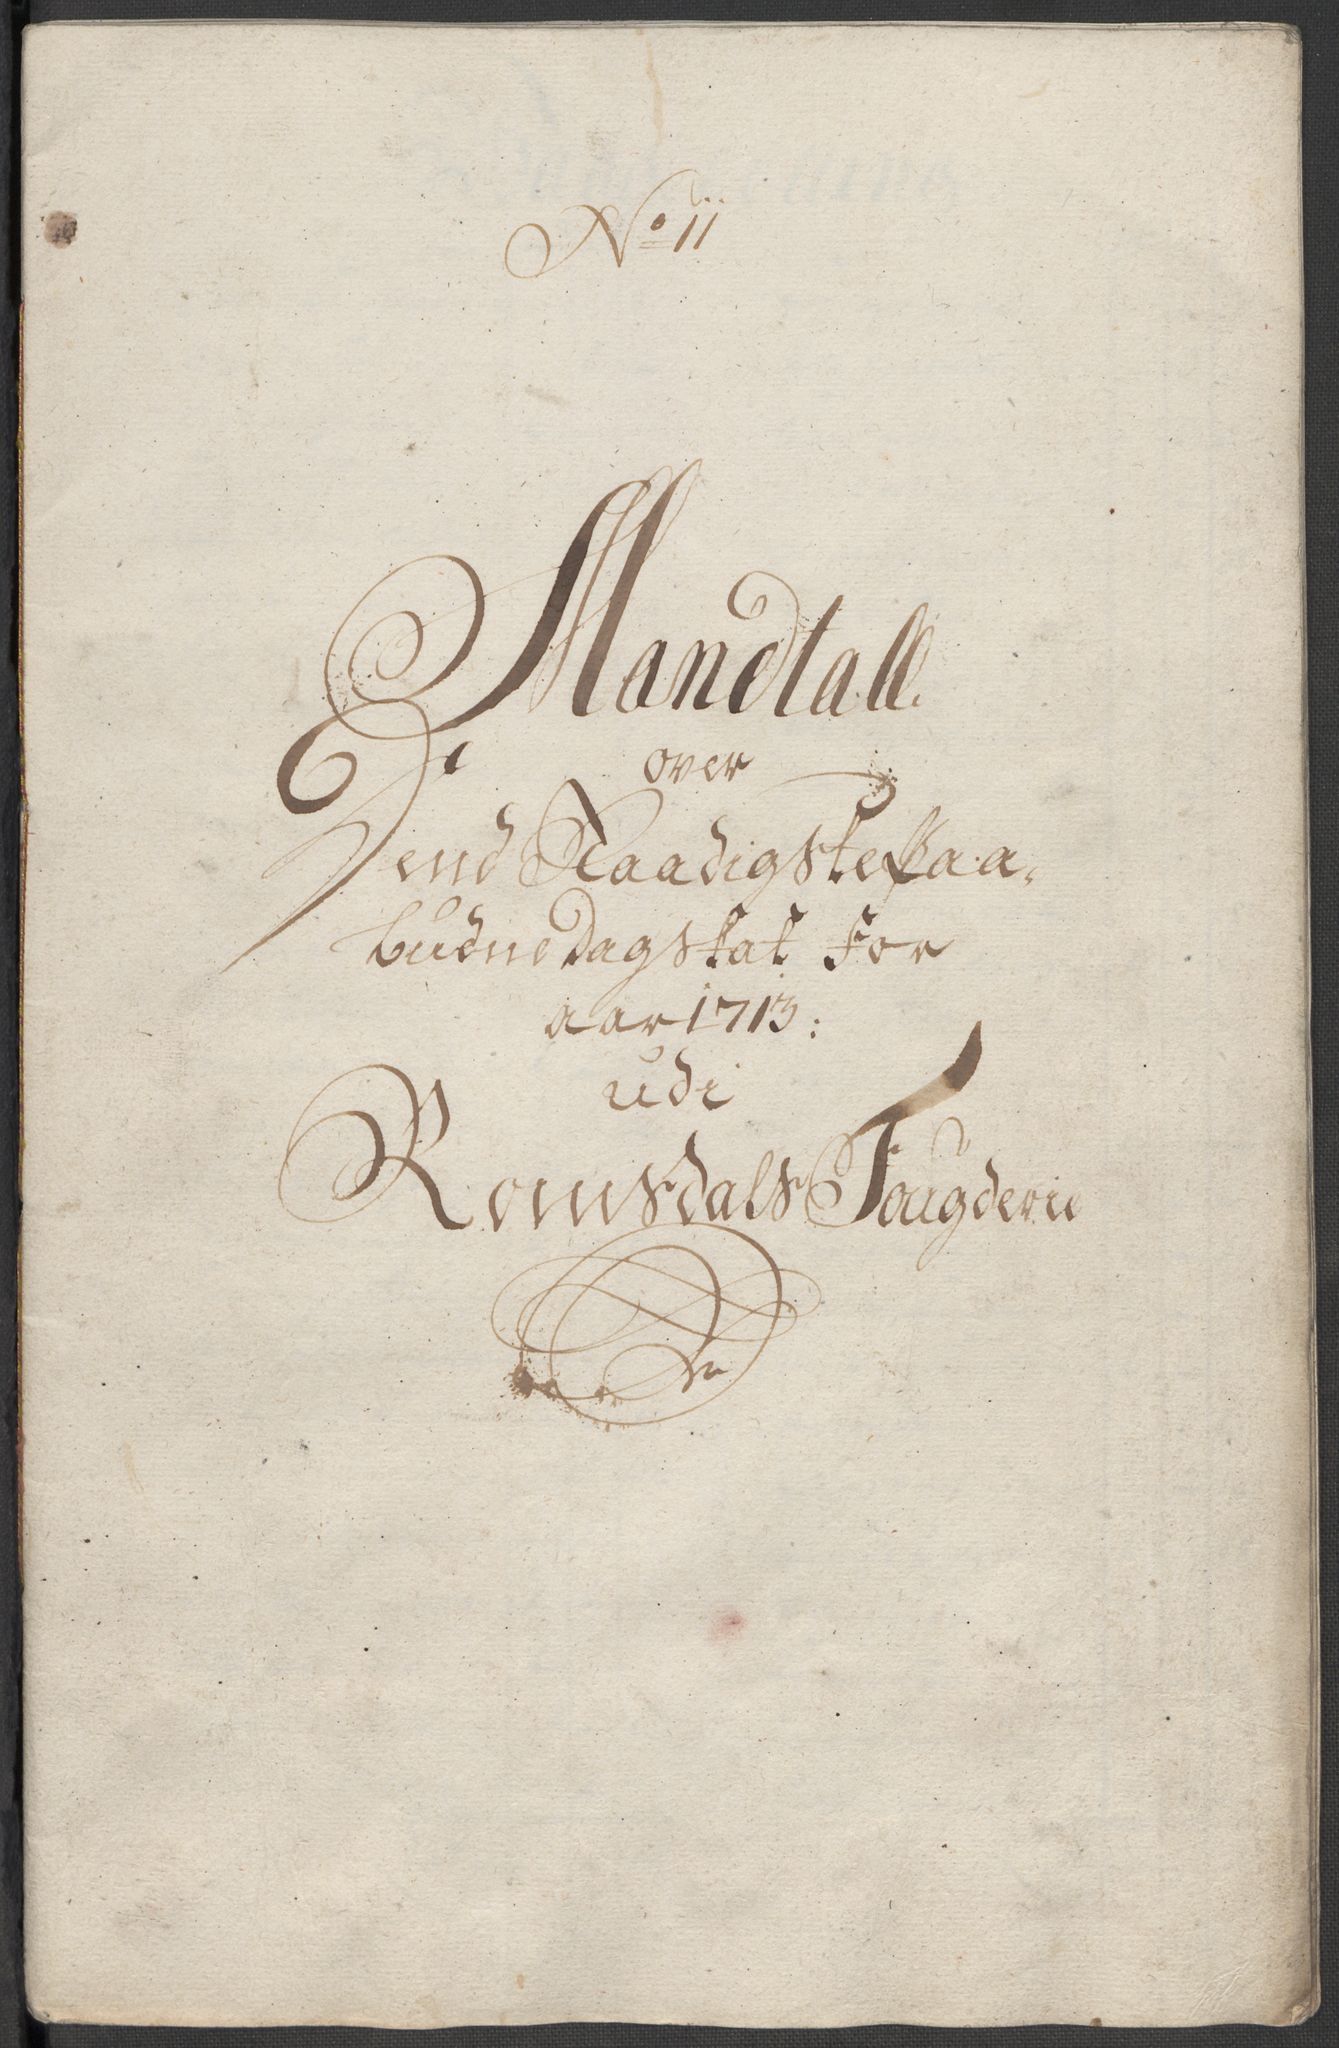 No 11
Mandtall
over
Dend Naadigste Paa-
budne Dagskat For
aar 1713:
udi
Romsdals Fougderie